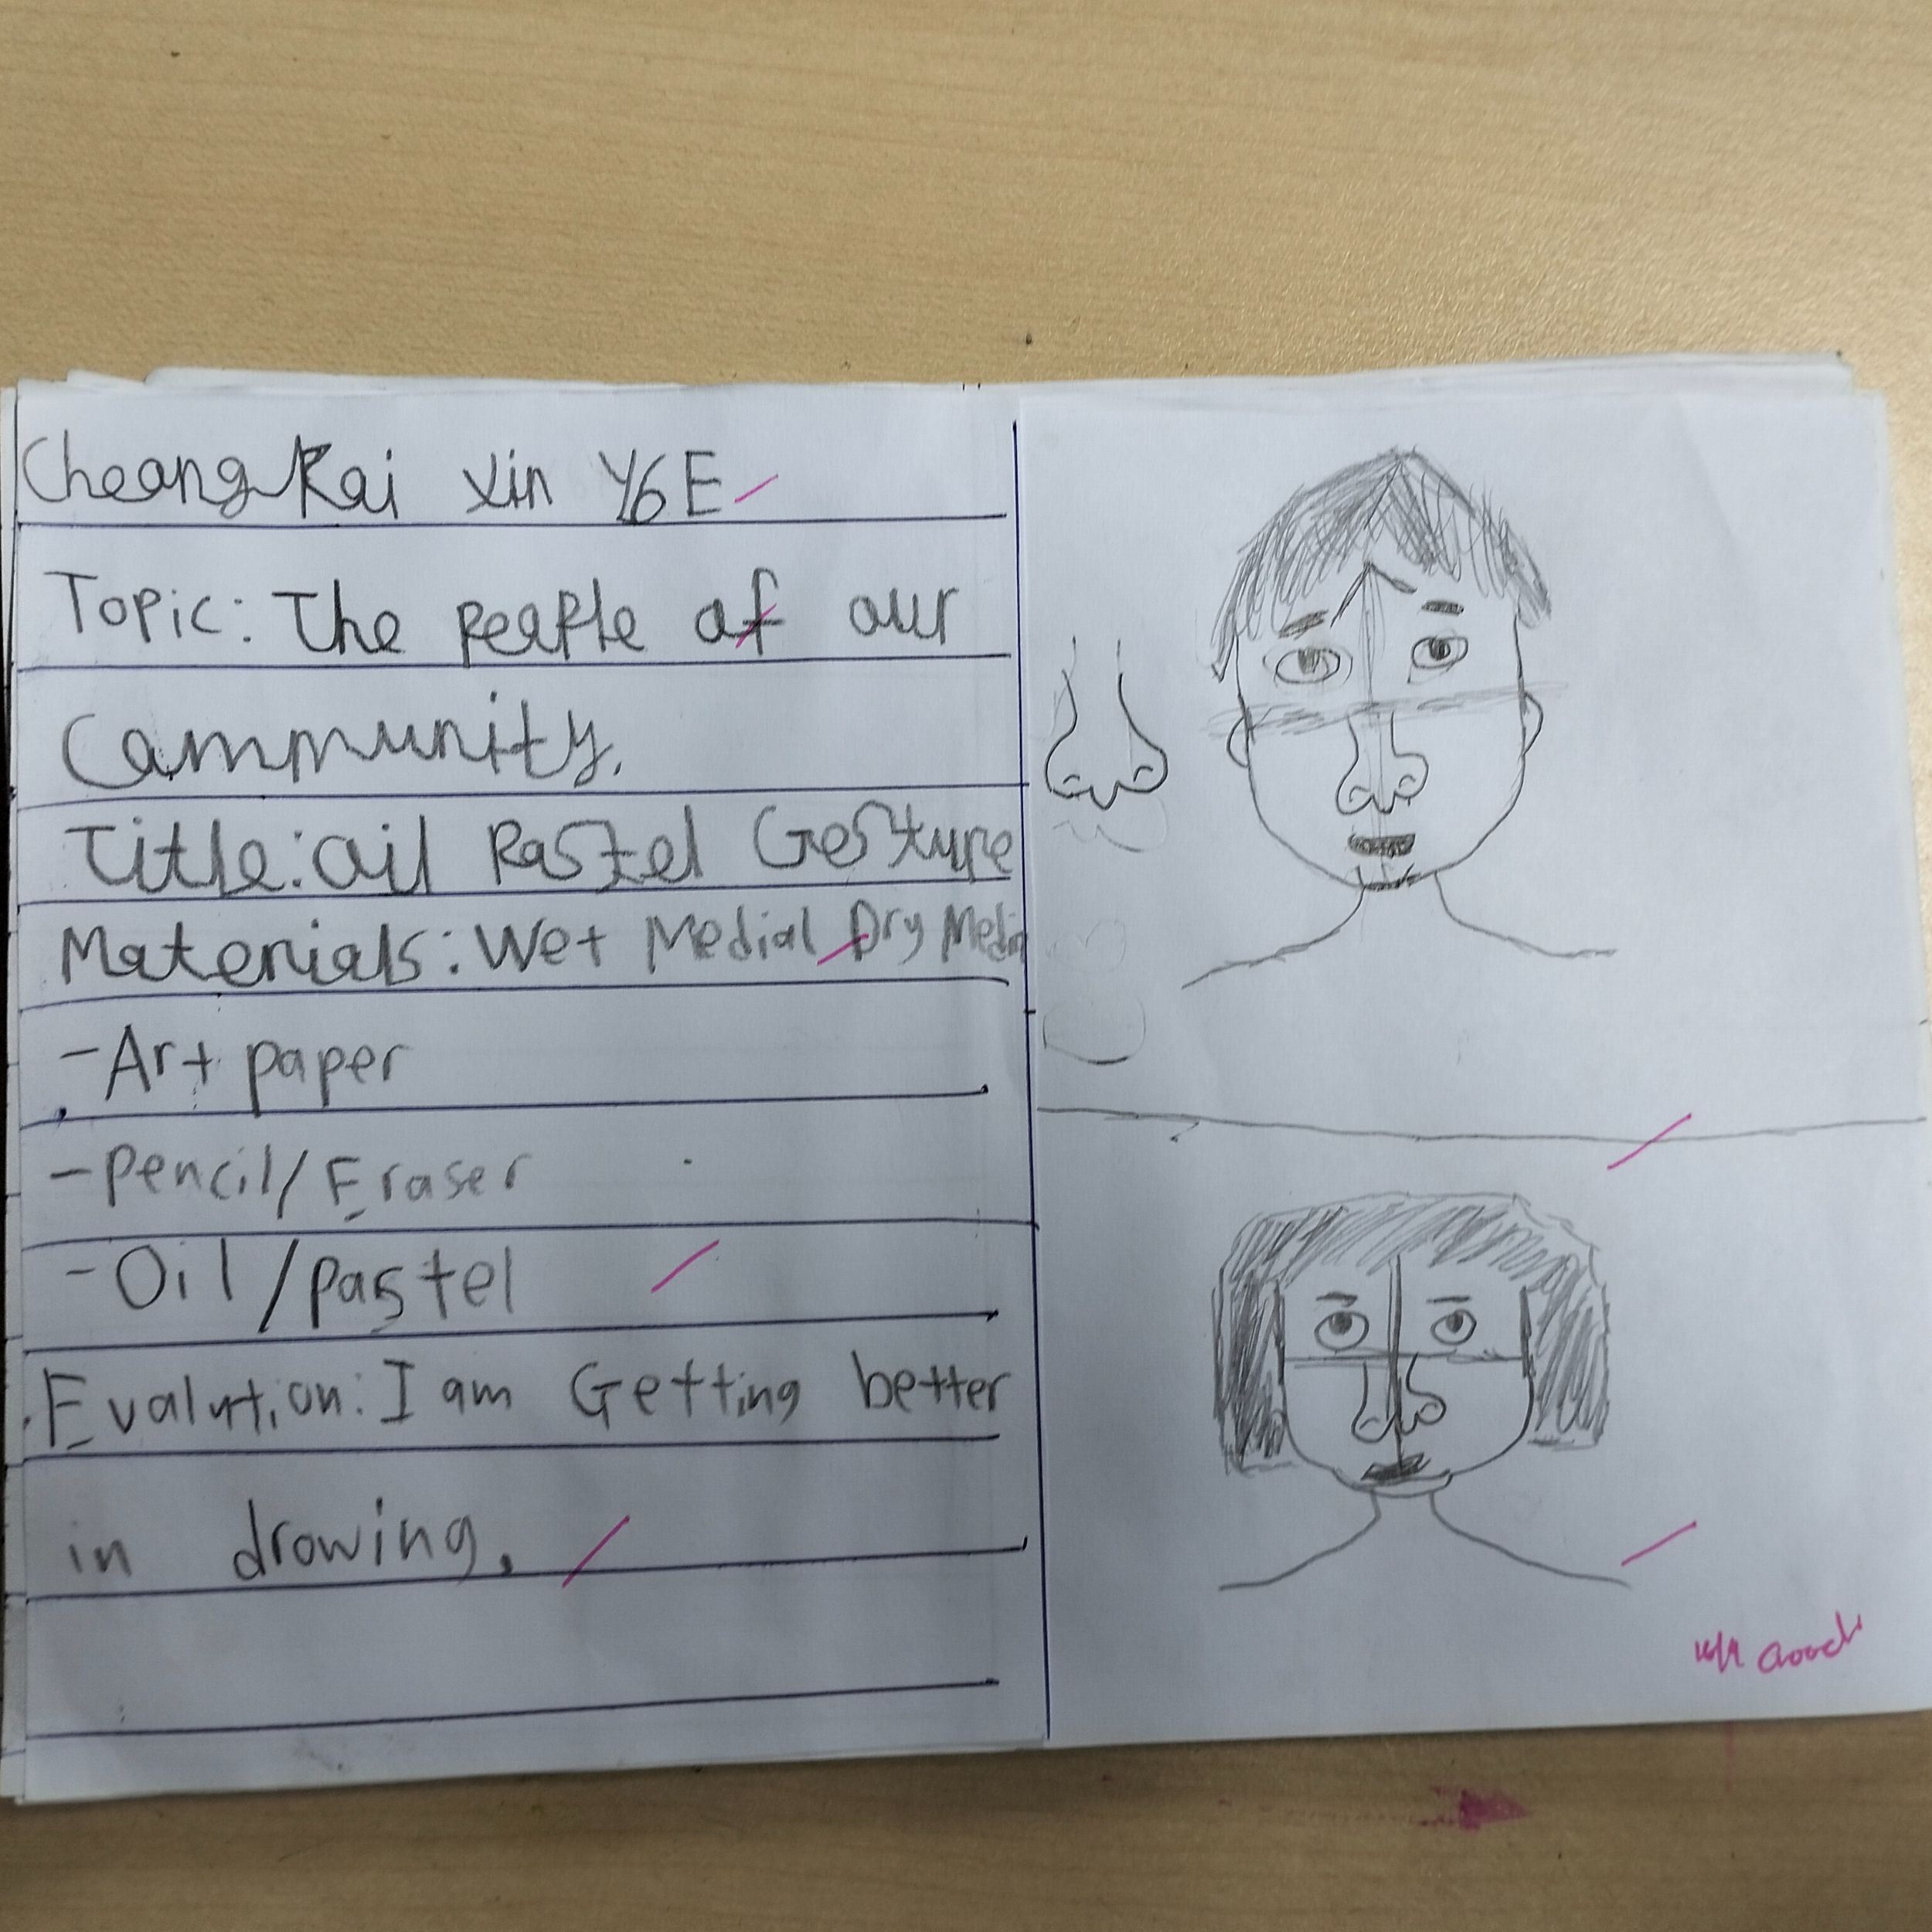 Cheang Kai Xin Y6E
Topic: The people of our
Community.
Title: Oil Pastel Gesture
Materials: Wet Medial Dry Media
- Art paper
- Pencil/Eraser
- Oil/pastel
Evalution: I am Getting better
in drowing.
Good